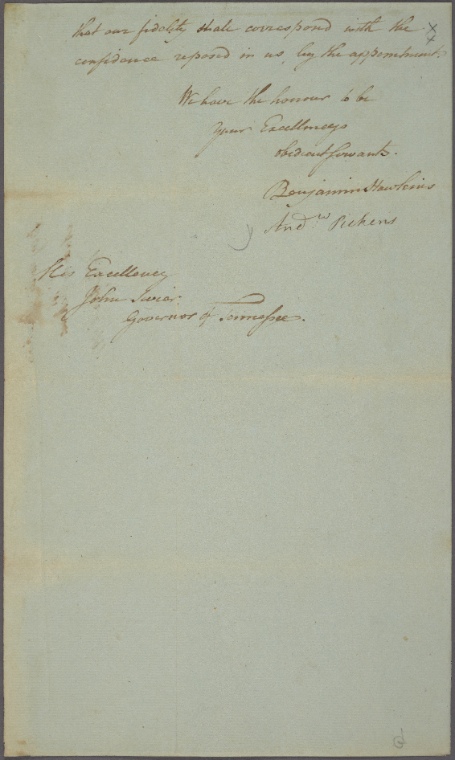 that our fidelity shall correspond with the
confidence reposed in us, by the appointment.
We have the honour to be
your Excellencys
obedient servants.
Benjamin Hawkins
Andw Pickens
His Excellency
John Sevier
Governor of Tennessee.